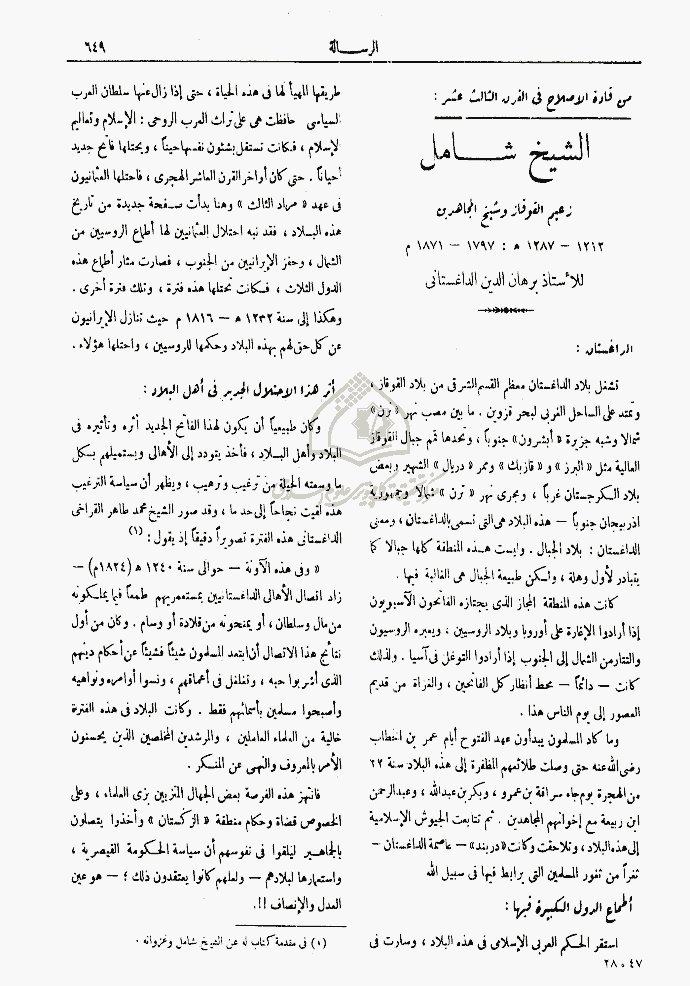 الرسالة
٦٤٩
من قادة الاصلاح فى القرن الثالث عشر :
الشيخ شامل
زعيم القوقاز وشيخ المجاهدين
١٢١٢ - ١٢٨٧ هـ : ١٧٩٧ - ١٨٧١ م
للأستاذ برهان الدين الداغستانى
الداغستان :
تشغل بلاد الداغستان معظم القسم الشرقى من بلاد القوقاز ،
وتمتد على الساحل الغربى لبحر قزوين . ما بين مصب نهر « ترن »
شمالا وشبه جزيرة « أبشرون » جنوباً ، وتحدها قمم جبال القوقاز
العالية مثل « البرز » و « قازبك » وممر « دريال » الشهير وبعض
بلاد الكرجستان غرباً ، ومجرى نهر « ترن » شمالا وجمهورية
اذربيجان جنوباً — هذه البلاد هى التى تسمى بالداغستان ، ومعنى
الداغستان : بلاد الجبال . وليست هذه المنطقة كلها جبالا كما
يتبادر لأول وهلة ، ولكن طبيعة الجبال هى الغالبة فيها .
كانت هذه المنطقة المجاز الذى يجتازه الفاتحون الآسيويون
إذا أرادوا الإغارة على أوروبا وبلاد الروسيين ، ويعبره الروسيون
والتتار من الشمال إلى الجنوب إذا أرادوا التوغل فى آسيا . ولذلك
كانت — دائماً — محط أنظار كل الفاتحين ، والغزاة من قديم
العصور إلى يوم الناس هذا .
وما كاد المسلمون يبدأون عهد الفتوح أيام عمر بن الخطاب
رضى الله عنه حتى وصلت طلائعهم المظفرة إلى هذه البلاد سنة ٢٢
من الهجرة يوم جاء سراقة بن عمرو ، وبكر بن عبدالله ، وعبدالرحمن
ابن ربيعة مع إخوانهم المجاهدين . ثم تتابعت الجيوش الإسلامية
إلى هذه البلاد ، وتلاحقت وكانت «دربند» — عاصمة الداغستان —
ثغراً من ثغور المسلمين التى يرابط فيها فى سبيل الله
أطماع الدول الكبيرة فيها :
استقر الحكم العربى الإسلامى فى هذه البلاد ، وسارت فى
٤٧ ٠ ٢٨
طريقها المهيأ لها فى هذه الحياة ، حتى إذا زال عنها سلطان العرب
السياسى حافظت هى على تراث العرب الروحى : الإسلام وتعاليم
الإسلام ، فكانت تستقل بشئون نفسها حيناً ، ويحتلها فاتح جديد
أحياناً . حتى كان أواخر القرن العاشر الهجرى ، فاحتلها العثمانيون
فى عهد « مراد الثالث » وهنا بدأت صفحة جديدة من تاريخ
هذه البلاد ، فقد نبه احتلال العثمانيين لها أطماع الروسيين من
الشمال ، وحفز الإيرانيين من الجنوب ، فصارت مثار أطماع هذه
الدول الثلاث ، فكانت تحتلها هذه فترة ، وتلك فترة أخرى .
وهكذا إلى سنة ١٢٣٢ هـ — ١٨١٦ م حيث تنازل الإيرانيون
عن كل حق لهم بهذه البلاد وحكمها للروسيين ، واحتلها هؤلاء .
أثر هذا الاحتلال الجديد فى أهل البلاد :
وكان طبيعياً أن يكون لهذا الفاتح الجديد أثره وتأثيره فى
البلاد وأهل البلاد ، فأخذ يتودد إلى الأهالى ويستميلهم بكل
ما وسعته الحيلة من ترغيب وترهيب ، ويظهر أن سياسة الترغيب
هذه لقيت نجاحاً إلى حد ما ، وقد صور الشيخ محمد طاهر القراخى
الداغستانى هذه الفترة تصويراً دقيقاً إذ يقول : (١)
« وفى هذه الآونة — حوالى سنة ١٢٤٠ هـ (١٨٢٤م) —
زاد اتصال الأهالى الداغستانيين بمستعمريهم طمعاً فيما يملكونه
من مال وسلطان ، أو يمنحونه من قلادة أو وسام . وكان من أول
نتائج هذا الاتصال أن ابتعد المسلمون شيئاً فشيئاً عن أحكام دينهم
الذى أشربوا حبه ، وتغلغل فى أعماقهم ، ونسوا أوامره ونواهيه
وأصبحوا مسلمين بأسمائهم فقط . وكانت البلاد فى هذه الفترة
خالية من العلماء العاملين ، والمرشدين المخلصين الذين يحسنون
الأمر بالمعروف والنهى عن المنكر .
فانتهز هذه الفرصة بعض الجهال المتزيين بزى العلماء ، وعلى
الخصوص قضاة وحكام منطقة « الزكستان » وأخذوا يتصلون
بالجماهير ليلقوا فى نفوسهم أن سياسة الحكومة القيصرية ،
واستعمارها لبلادهم — ولعلهم كانوا يعتقدون ذلك ؛ — هو عين
العدل والإنصاف !! .
(١) فى مقدمة كتاب له عن الشيخ شامل وغزواته .